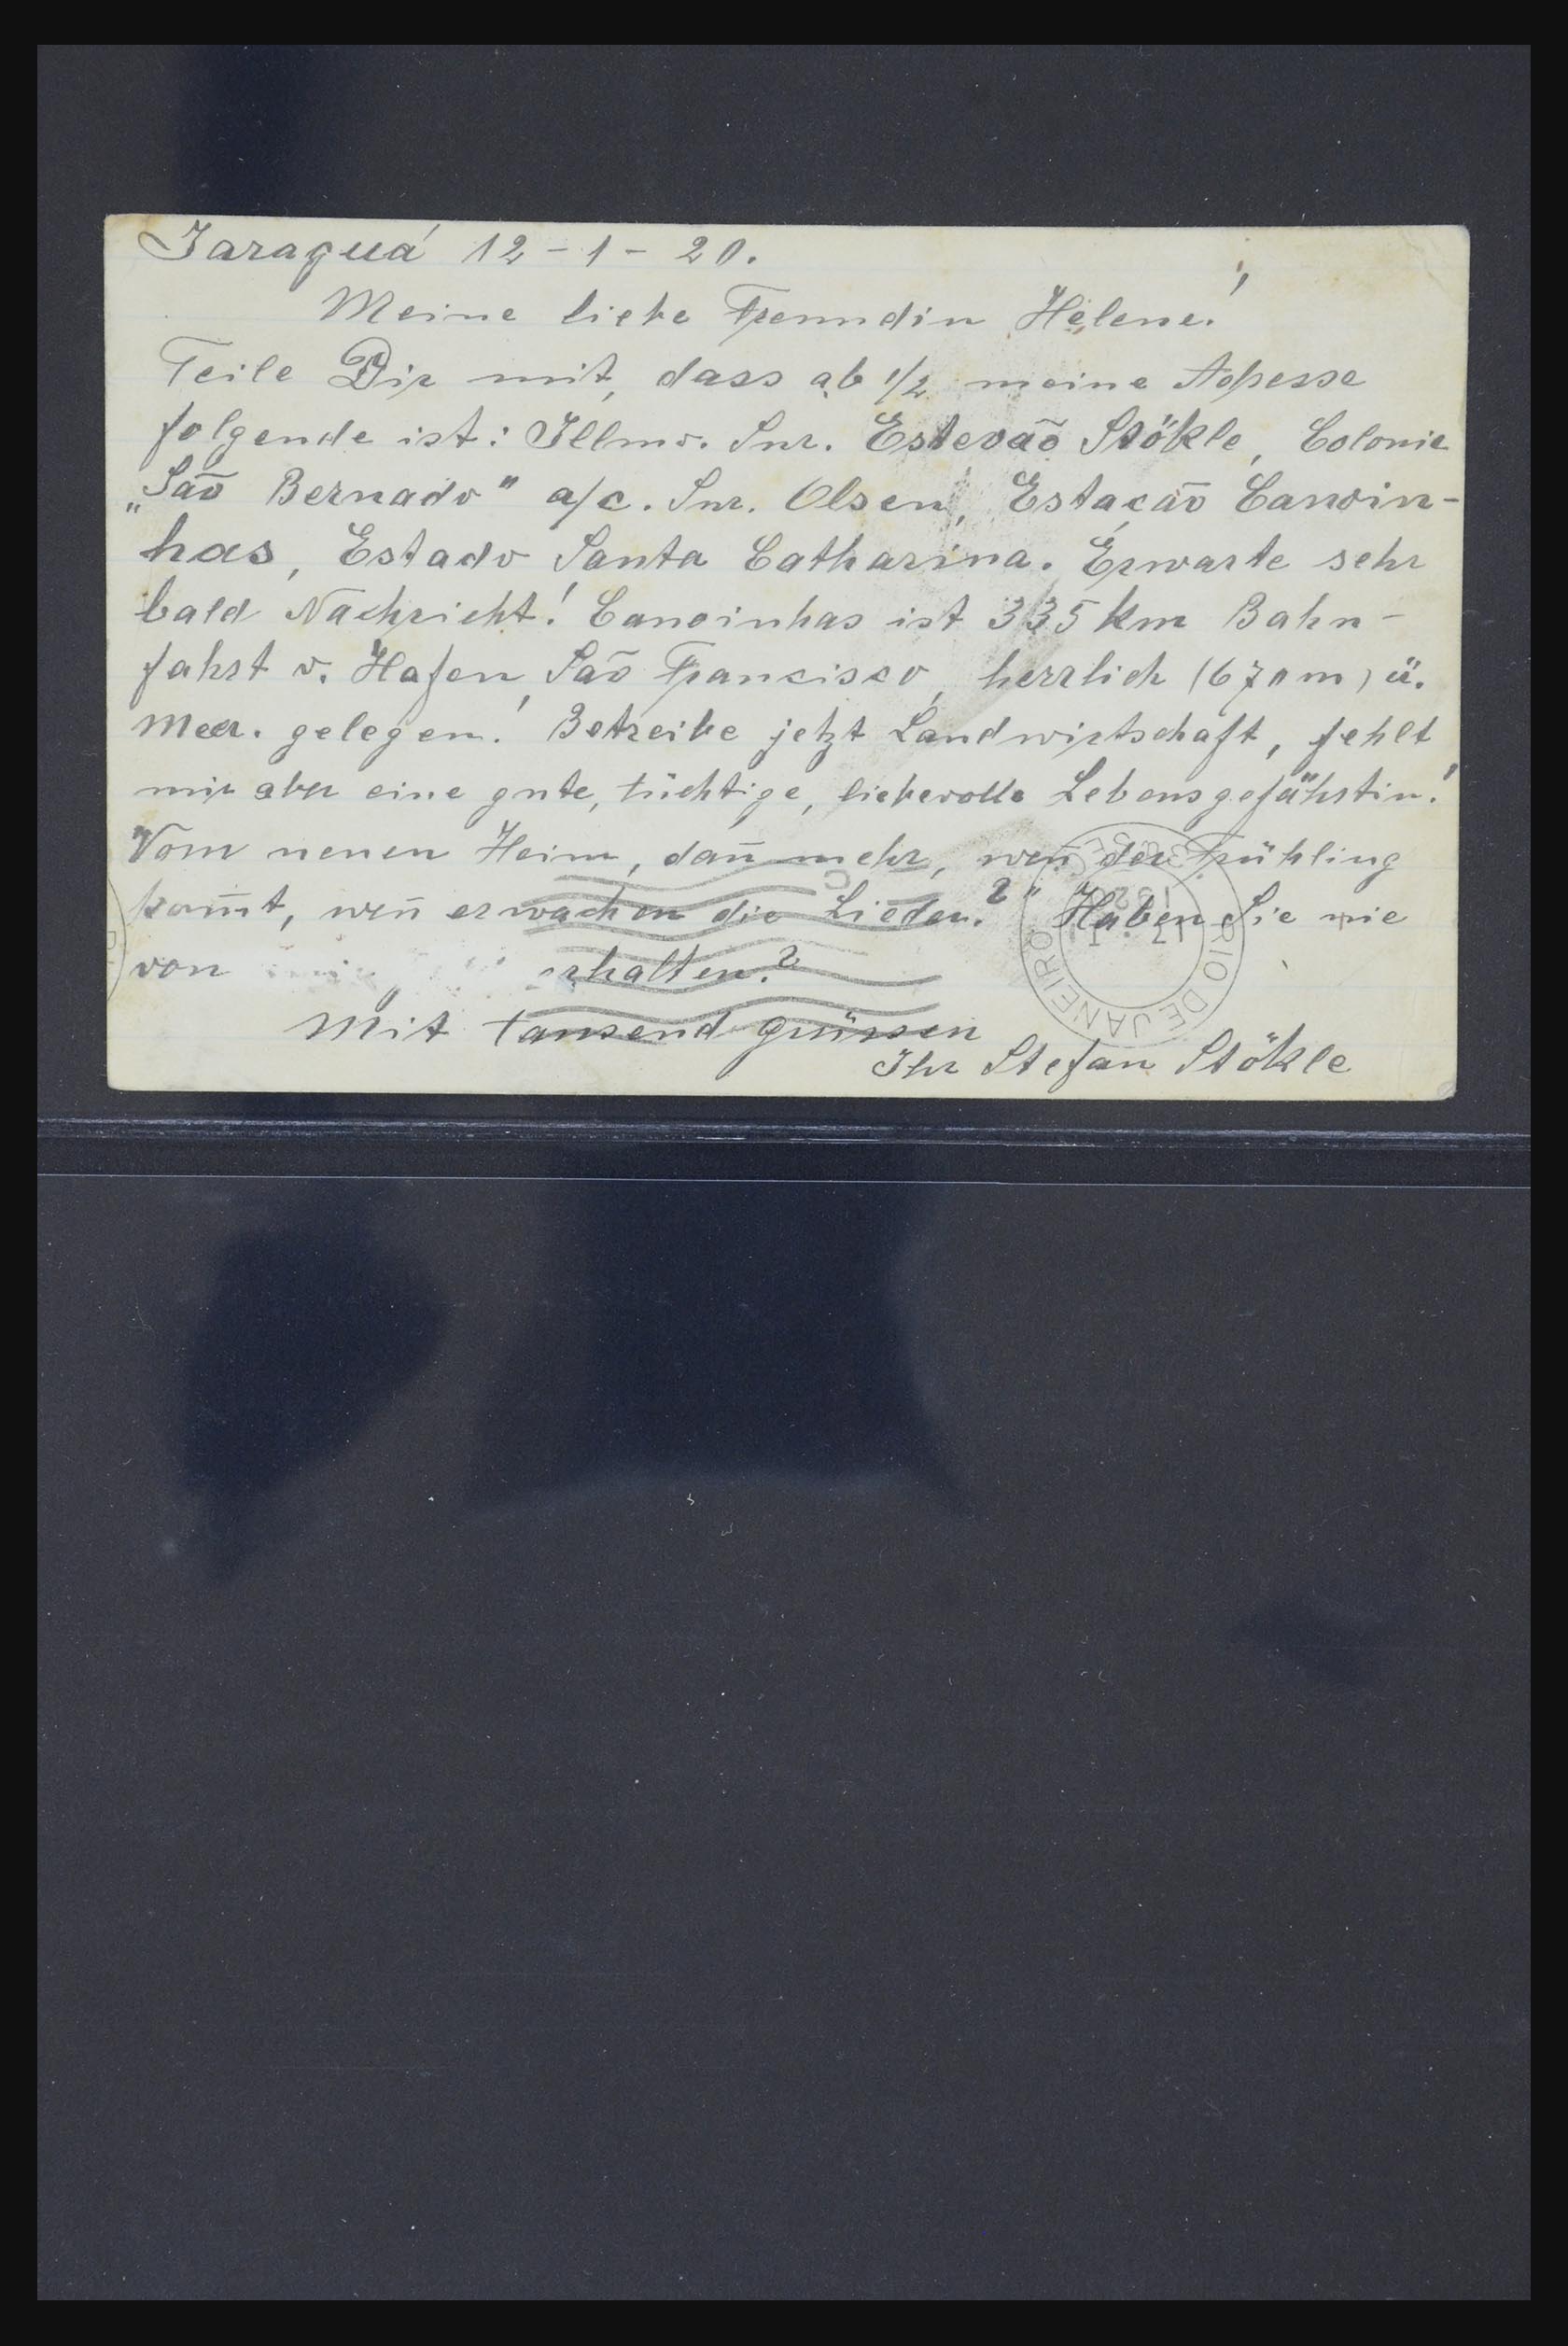 Jaraguá 12 - 1 - 20.
Meine liebe Freundin Helene!
Teile Dir mit, dass ab 1/2 meine Adresse
folgende ist: Illmo. Snr. Estevão Stökle, Colonie
„São Bernado" a/c. Snr. Olsen, Estacão Canoin-
has, Estado Santa Catharina. Erwarte sehr
bald Nachricht! Canoinhas ist 335 km Bahn-
fahrt v. Hafen São Francisco, herrlich (670 m) ü.
Meer. gelegen! Betreibe jetzt Landwirtschaft, fehlt
mir aber eine gute, tüchtige, liebevolle Lebensgefährtin!
"Vom neuen Heim, dan̄ mehr, wen̄ der Frühling
kom̄t, wen̄ erwachen die Lieder.?" Haben Sie nie
von erhalten.?
Mit tausend Grüssen
Ihr Stefan Stökle
RIO DE JANEIRO
17. I